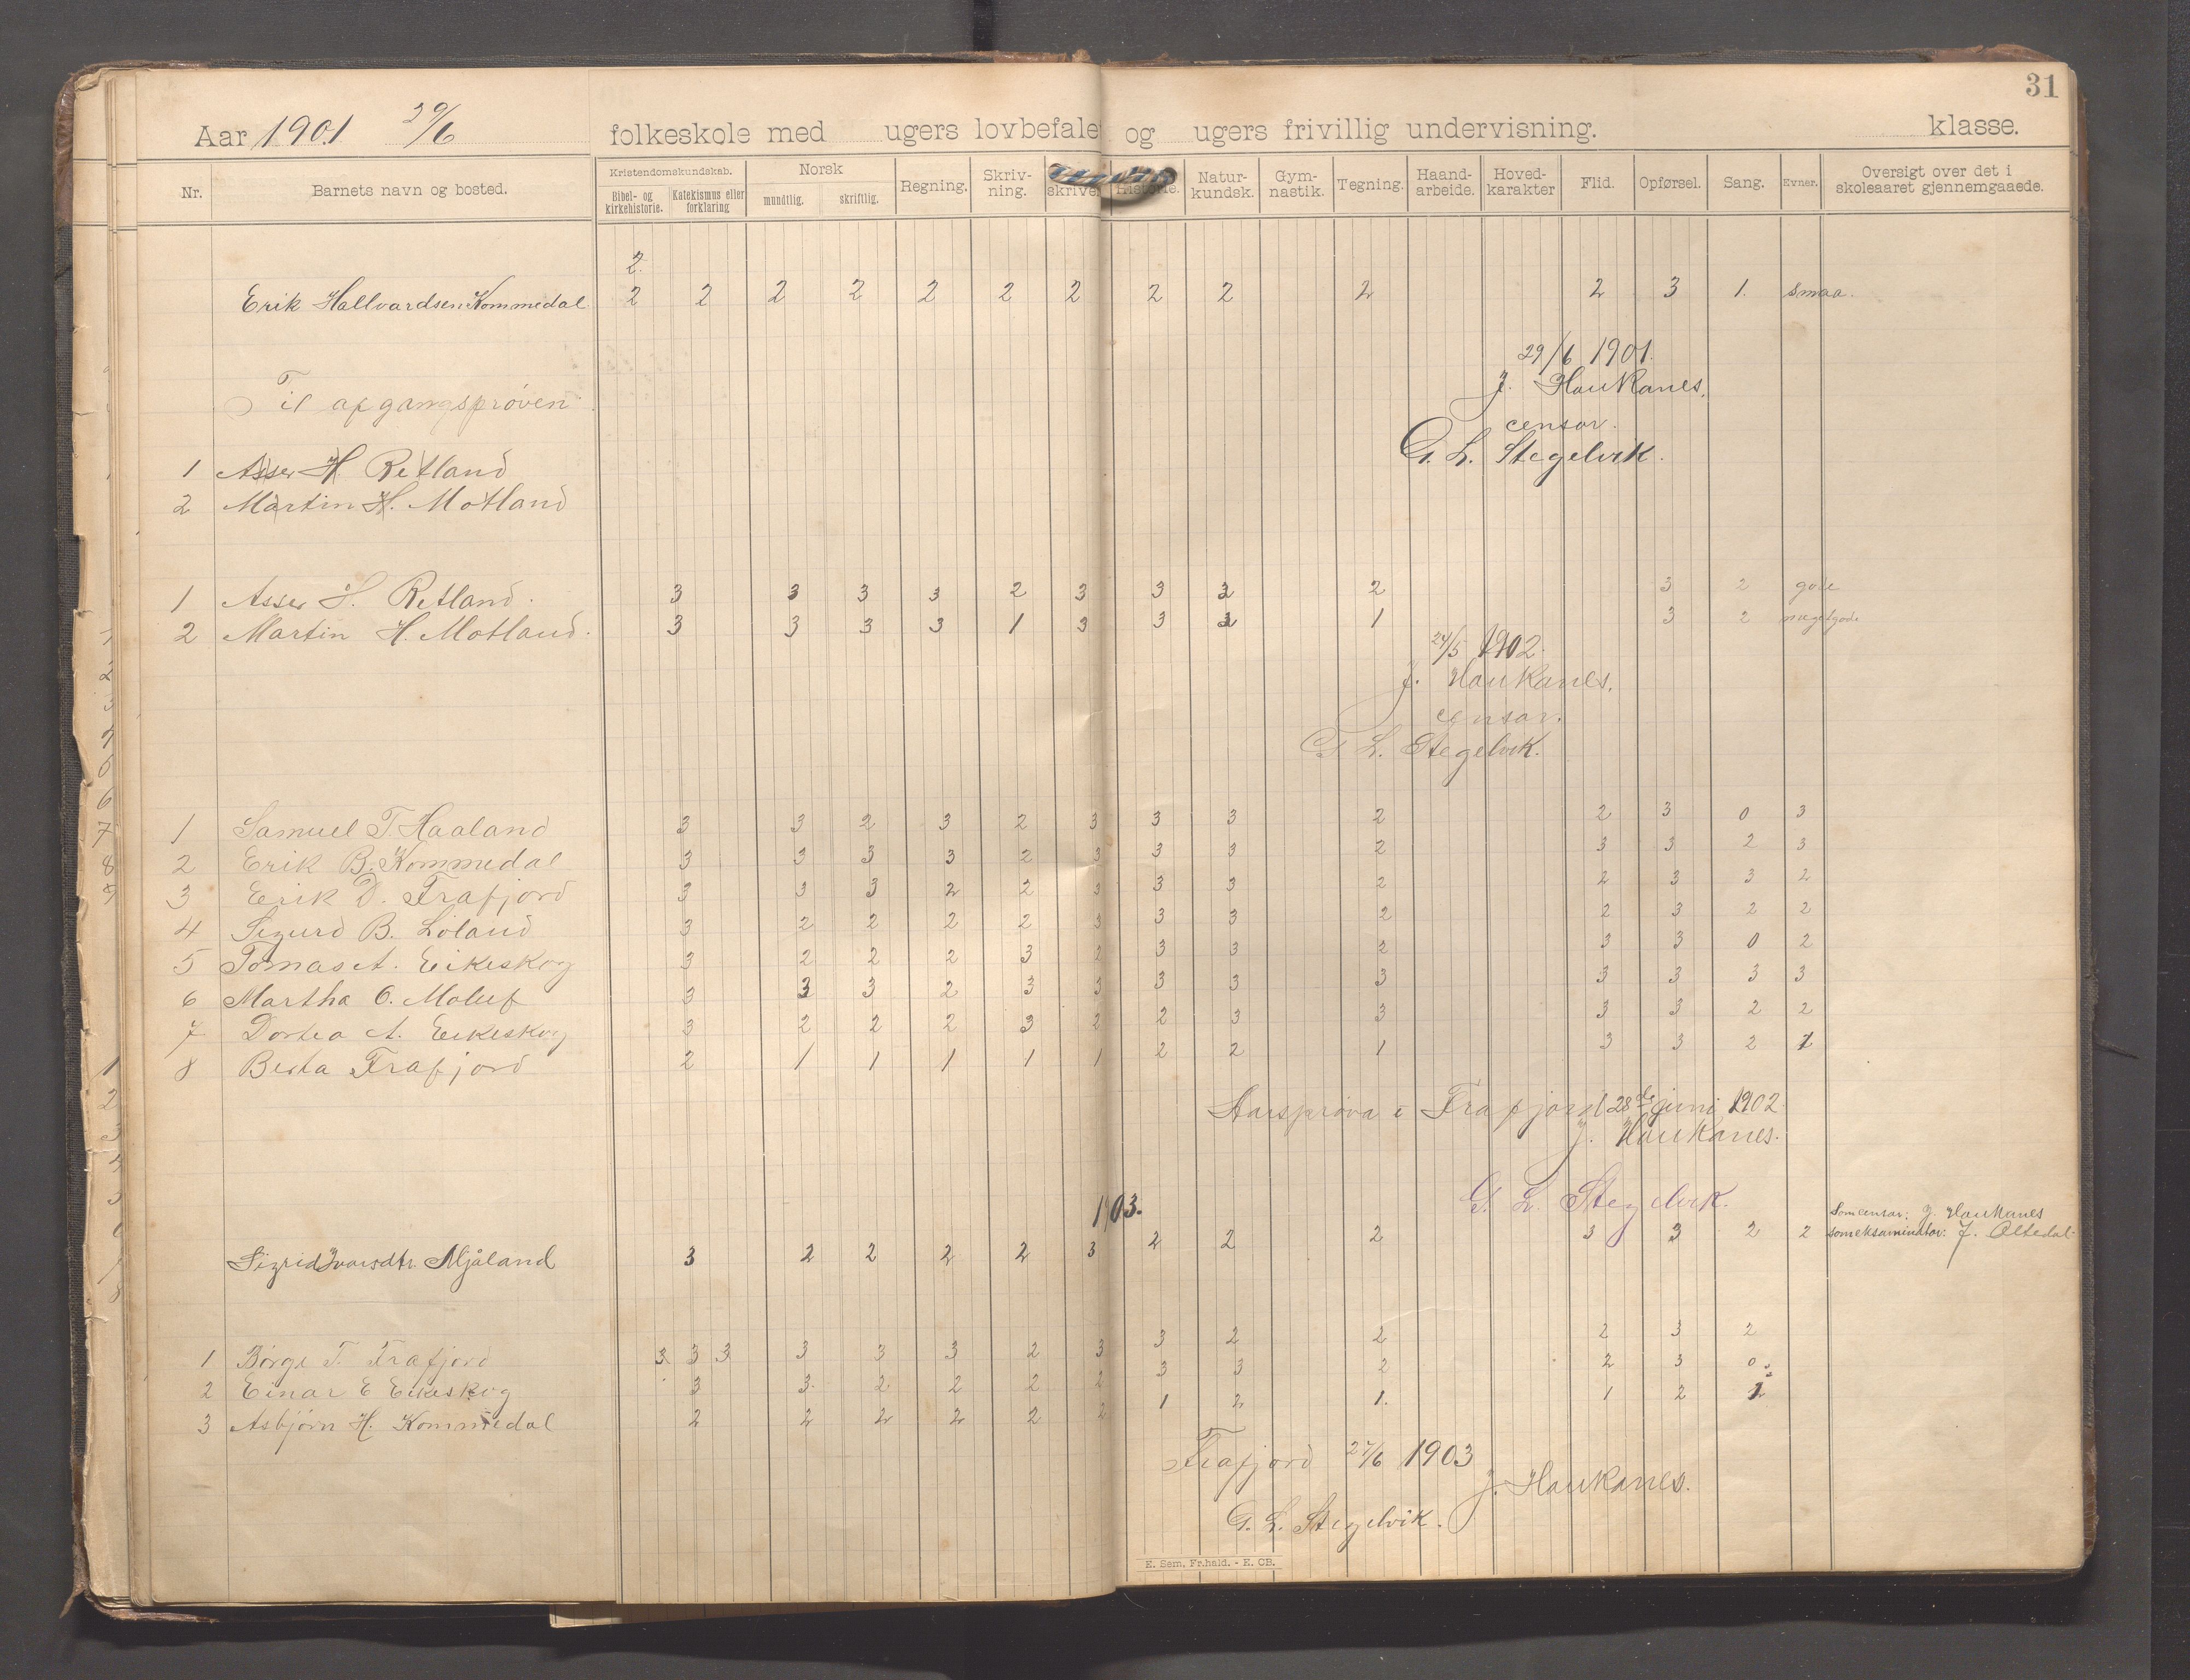 31
Aar 1901 29/6 folkeskole med ugers lovbefalet og ugers frivillig undervisning. klasse.
Nr. Barnets navn og bosted. Kristendomskundskab. Bibel- og kirkehistorie. Katekismus eller forklaring Norsk mundtlig. skriftlig. Regning. Skriv-ning. Historie. Natur-kundsk. Gym-nastik. Tegning. Haand-arbeide. Hoved-karakter Flid. Opførsel. Sang. Evner. Oversigt over det i skoleaaret gjennemgaaede.
2.
Erik Hallvardsen Kommedal 2 2 2 2 2 2 2 2 2 2 2 3 1. smaa.
29/6 1901.
J. Haukanes.
Til afgangsprøven
censor.
G. L. Stegelvik.
1 Asser H. Retland
2 Martin H. Motland
1 Asser H. Retland. 3 3 3 3 2 3 3 3 2 3 2 gode
2 Martin H. Motland. 3 3 3 3 1 3 3 3 1 3 2 megetgode
24/5 1902.
J. Haukanes.
censor.
G. L. Stegelvik.
1 Samuel T. Haaland 3 3 2 3 2 3 3 3 2 2 3 0 3
2 Erik B. Kommedal 3 3 3 3 2 3 3 3 2 3 3 2 3
3 Erik D. Frafjord 3 3 3 2 2 3 3 3 2 2 3 3 2
4 Sigurd B. Löland 3 2 2 2 2 3 3 3 2 2 3 2 2
5 Tomas A. Eikeskog 3 2 2 2 3 2 3 3 2 3 3 0 2
6 Martha O. Moluf 3 3 3 2 3 3 3 3 3 3 3 3 3
7 Dortea A. Eikeskog 3 2 2 2 3 2 2 3 3 3 3 2 2
8 Berta Frafjord 2 1 1 1 1 1 2 2 1 3 3 2 1
Aarsprøva i Frafjord 28de juni 1902
J. Haukanes.
G. L. Stegelvik.
1903.
Som censor: J. Haukanes
Sigrid Ivarsdtr. Mjåland 3 2 2 2 2 3 2 2 2 3 3 2 2 som eksaminator: J. Oltedal.
1 Börge T. Frafjord 3 3 3 3 3 3 2 3 3 2 2 2 3 2
2 Einar E Eikeskog 3 3. 2 2 2 2 3 3 2 2 3 0
3 Asbjörn H. Kommedal 2 2 2 2 2 2 1 2 1. 1 2 1
Frafjord 27/6 1903
J. Haukanes.
G. L. Stegelvik.
E. Sem, Fr.hald. - E. CB.